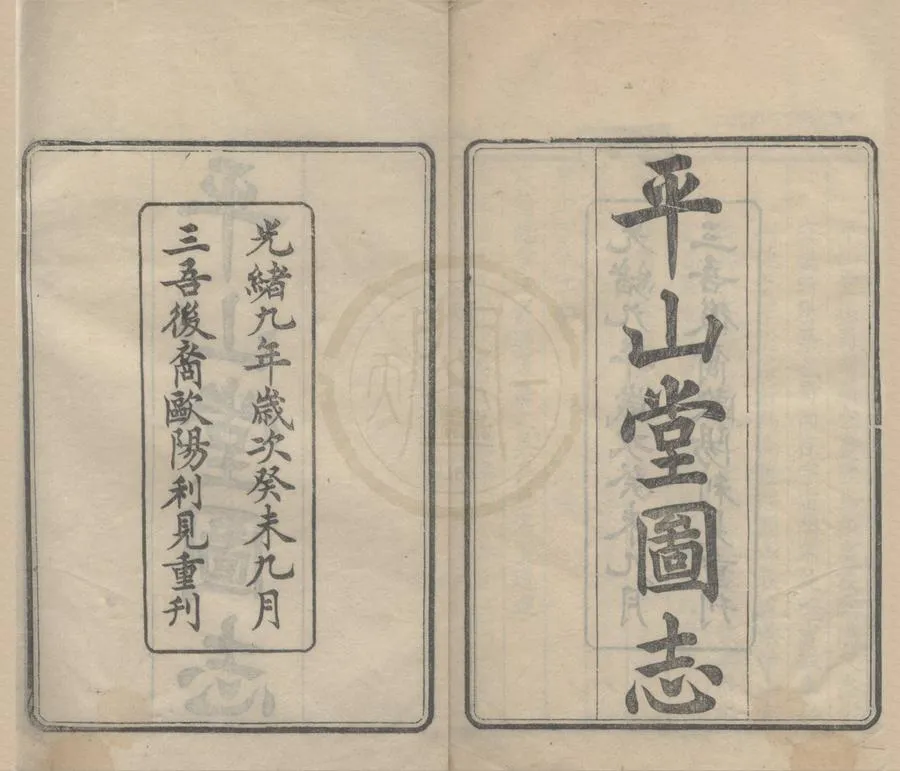 平山堂圖志
光緒九年歲次癸未九月
三吾後裔歐陽利見重刊